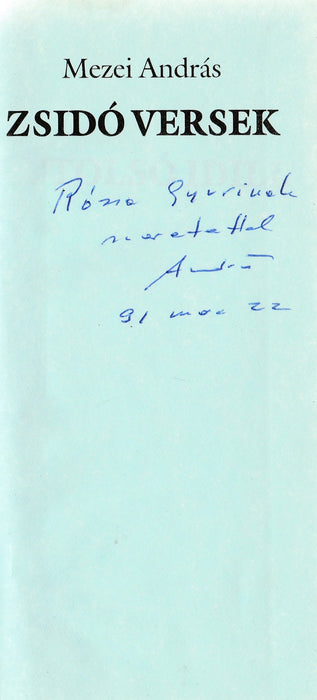 Mezei András
ZSIDÓ VERSEK
Rózsa Gyurinak
szeretettel
András
91 mar 22